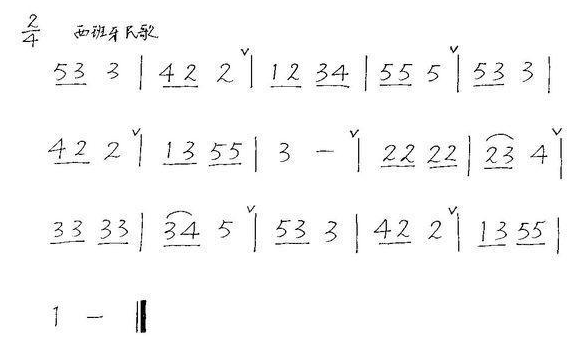 2/4 西班牙民歌
53 3 | 42 2 ˅| 12 34 | 55 5 ˅| 53 3 |
42 2 ˅| 13 55 | 3 - ˅| 22 22 | 23 4 ˅|
33 33 | 34 5 ˅| 53 3 | 42 2 ˅| 13 55 |
1 - ‖